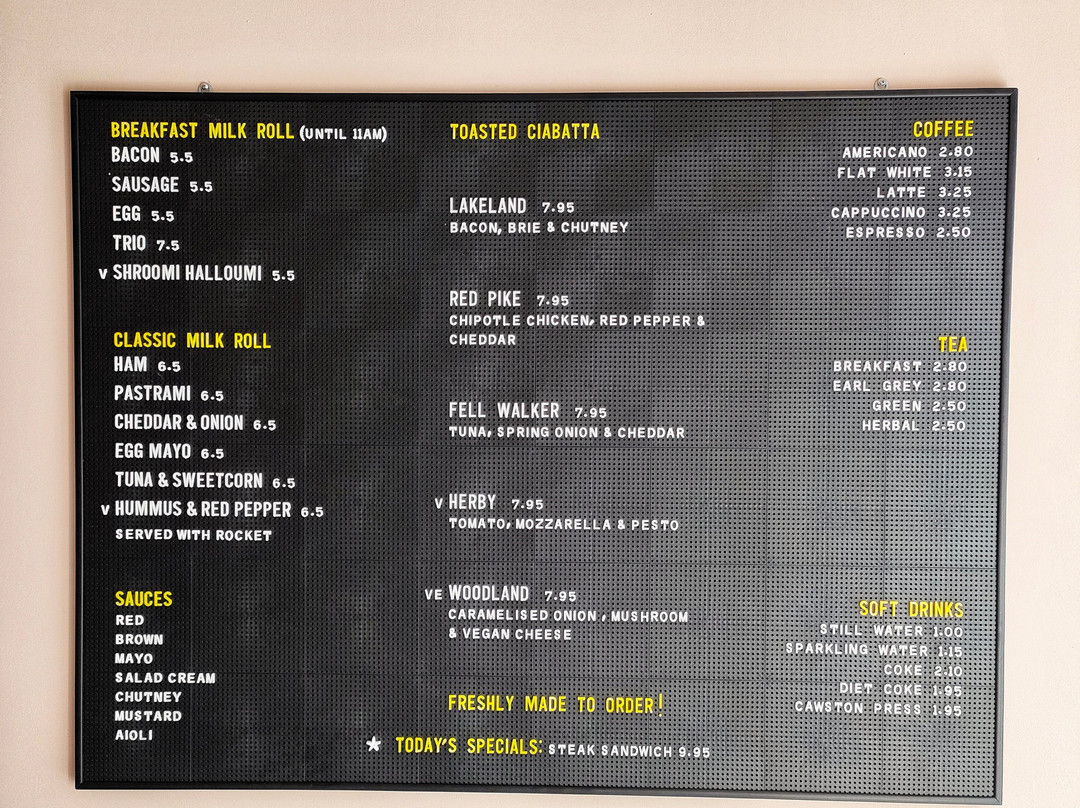 BREAKFAST MILK ROLL (UNTIL 11AM)
BACON 5.5
SAUSAGE 5.5
EGG 5.5
TRIO 7.5
V SHROOMI HALLOUMI 5.5
CLASSIC MILK ROLL
HAM 6.5
PASTRAMI 6.5
CHEDDAR & ONION 6.5
EGG MAYO 6.5
TUNA & SWEETCORN 6.5
V HUMMUS & RED PEPPER 6.5
SERVED WITH ROCKET
SAUCES
RED
BROWN
MAYO
SALAD CREAM
CHUTNEY
MUSTARD
AIOLI
TOASTED CIABATTA
LAKELAND 7.95
BACON, BRIE & CHUTNEY
RED PIKE 7.95
CHIPOTLE CHICKEN, RED PEPPER &
CHEDDAR
FELL WALKER 7.95
TUNA, SPRING ONION & CHEDDAR
V HERBY 7.95
TOMATO, MOZZARELLA & PESTO
VE WOODLAND 7.95
CARAMELISED ONION , MUSHROOM
& VEGAN CHEESE
FRESHLY MADE TO ORDER!
★ TODAY'S SPECIALS: STEAK SANDWICH 9.95
COFFEE
AMERICANO 2.80
FLAT WHITE 3.15
LATTE 3.25
CAPPUCCINO 3.25
ESPRESSO 2.50
TEA
BREAKFAST 2.80
EARL GREY 2.80
GREEN 2.50
HERBAL 2.50
SOFT DRINKS
STILL WATER 1.00
SPARKLING WATER 1.15
COKE 2.10
DIET COKE 1.95
CAWSTON PRESS 1.95